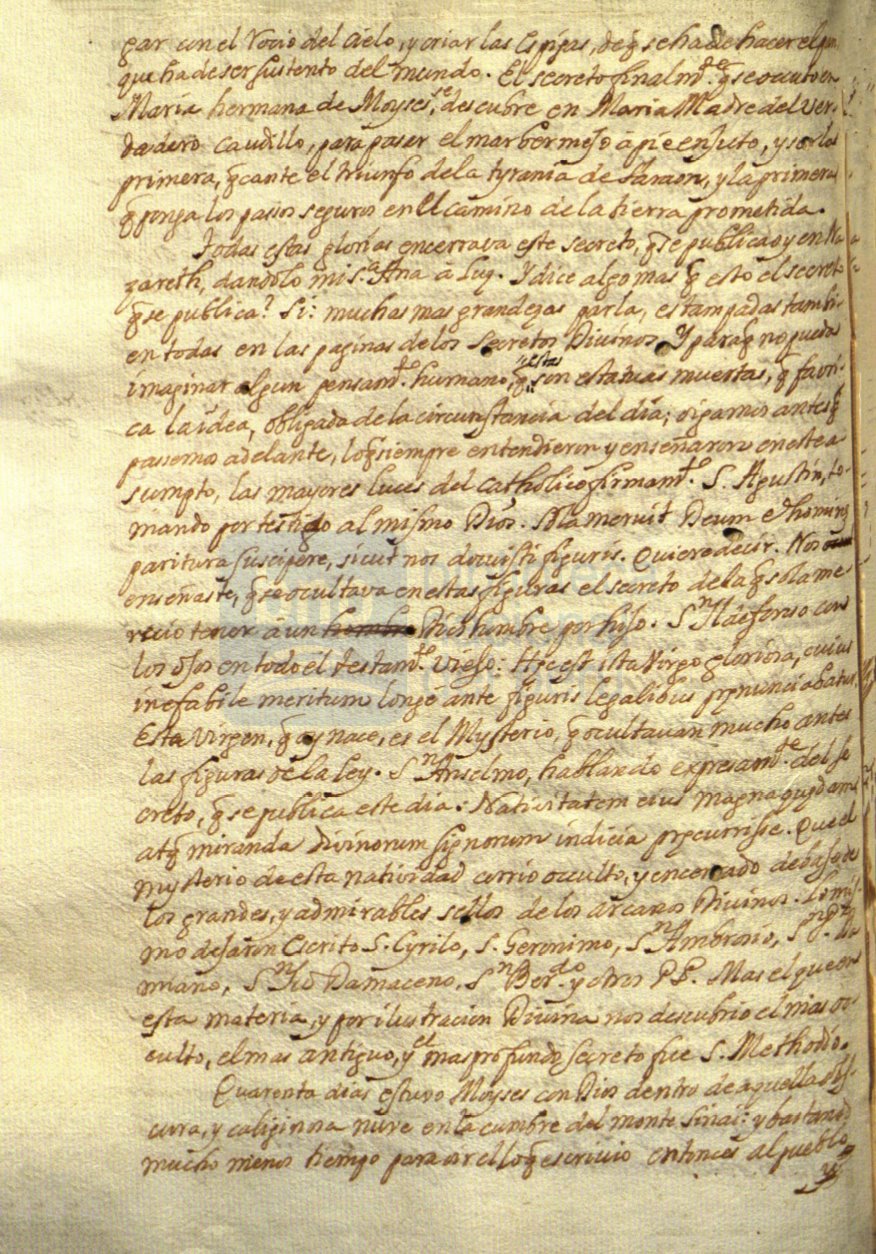 gar con el Rocio del cielo, y criar las Espigas, de q̃ se ha de hacer el pan
que ha de ser sustento del mundo. El secreto finalm.te q̃ se occuto en
Maria hermana de Moyses, se descubre en Maria Madre del Ver-
dadero Caudillo, para pasar el mar bermejo a pie enjuto, y ser la
primera, q̃ cante el triunfo de la tyrania de Faraon, y la primera
q̃ ponga los pasos seguros en el camino de la tierra prometida.
Todas estas glorias encerrava este secreto, q̃ se publica oy en Na
zareth, dandolo mi S.a Ana à luz. Y dice algo mas q̃ esto el secreto
q̃ se publica? Si: muchas mas grandezas parla, estampadas tambi-
en todas en las paginas de los secretos Divinos. Y para q̃ no pueda
imaginar algun pensam.to humano, q̃ estas son estatuas muertas, q̃ favri-
ca la idea, obligada de la circunstancia del dia; oigamos antes q̃
passemos adelante, lo q̃ siempre entendieron y enseñaron en este a
sumpto, las mayores luces del catholico firmam.to S. Agustin, to-
mando por testigo al mismo Dios. Illa meruit Deum & hominẽ
paritura suscipere, sicut nos docuisti figuris. Quiere decir. Nos
enseñaste, q̃ se ocultava en estas figuras el secreto de la q̃ sola me-
recio tener à un Dios hombre por hijo. S.n Ildefonso con
los ojos en todo el testam.to viejo: Hęc est ista Virgo gloriosa, cuius
inefabile meritum longè ante figuris legalibus pręnunciabatur.
Esta Virgen, q̃ oy nace, es el Mysterio, q̃ ocultavan mucho antes
las figuras de la ley. S.n Anselmo, hablando expresam.te del se
creto, q̃ se publica este dia: Nativitatem eius magna quędam
atq̃ miranda divinorum signorum indicia pręcurrisse. Que el
mysterio de esta natividad corrio occulto, y encerrado debajo de
los grandes, y admirables sellos de los arcanos Divinos. Lo mis-
mo dejaron Escrito S. Cyrilo, S. Geronimo, S.n Ambrosio, S.n P.o Da
miano, S.n Jio Damaceno, S.n Ber.do y otros P.P. Mas el que en
esta materia, y por ilustracion Divina nos descubrio el mas oc
culto, el mas antiguo, y el mas profundo secreto fue S. Methodio.
Quarenta dias estuvo Moyses con Dios dentro de aquella obs-
cura, y caliginosa nuve en la cumbre del monte Sinai: y bastando
mucho menos tiempo para oir ello q̃ escrivio entonces al pueblo,